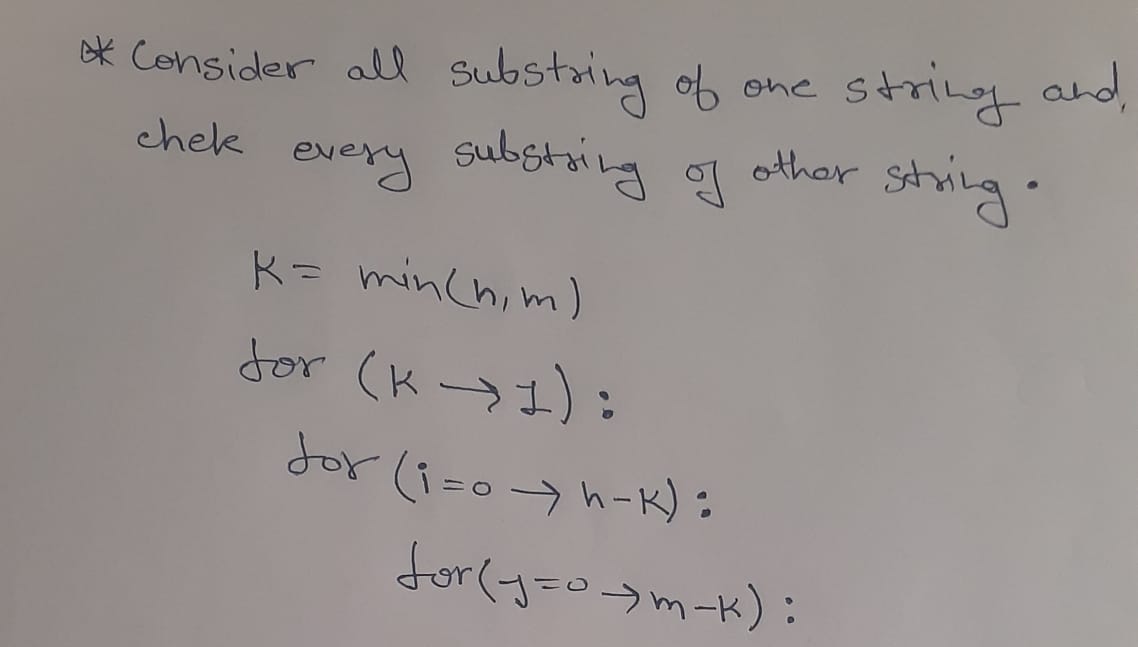 * Consider all substring of one string and,
chek every substring of other string.
K = min(n, m)
for (K → 1):
for (i=0 → n-K):
for(j=0 → m-K):